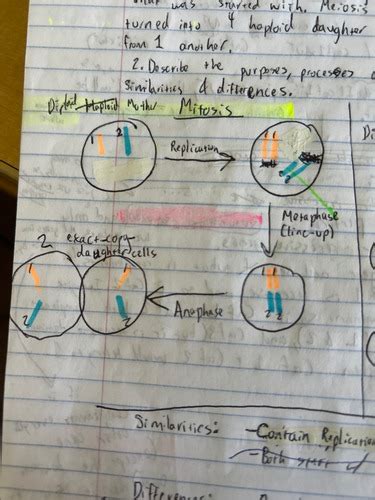 was started with. Meiosis
turned into 4 haploid daughter
from 1 another.
2. Describe the purposes, processes
Similarities & differences.
Diploid Haploid Mother Mitosis
1 2
Replication
Metaphase
(line-up)
2 exact copy
daughter cells
1 1
2 2
Anaphase
1 1
2 2
Similarities: - Contain Replication
- Both start
Differences: